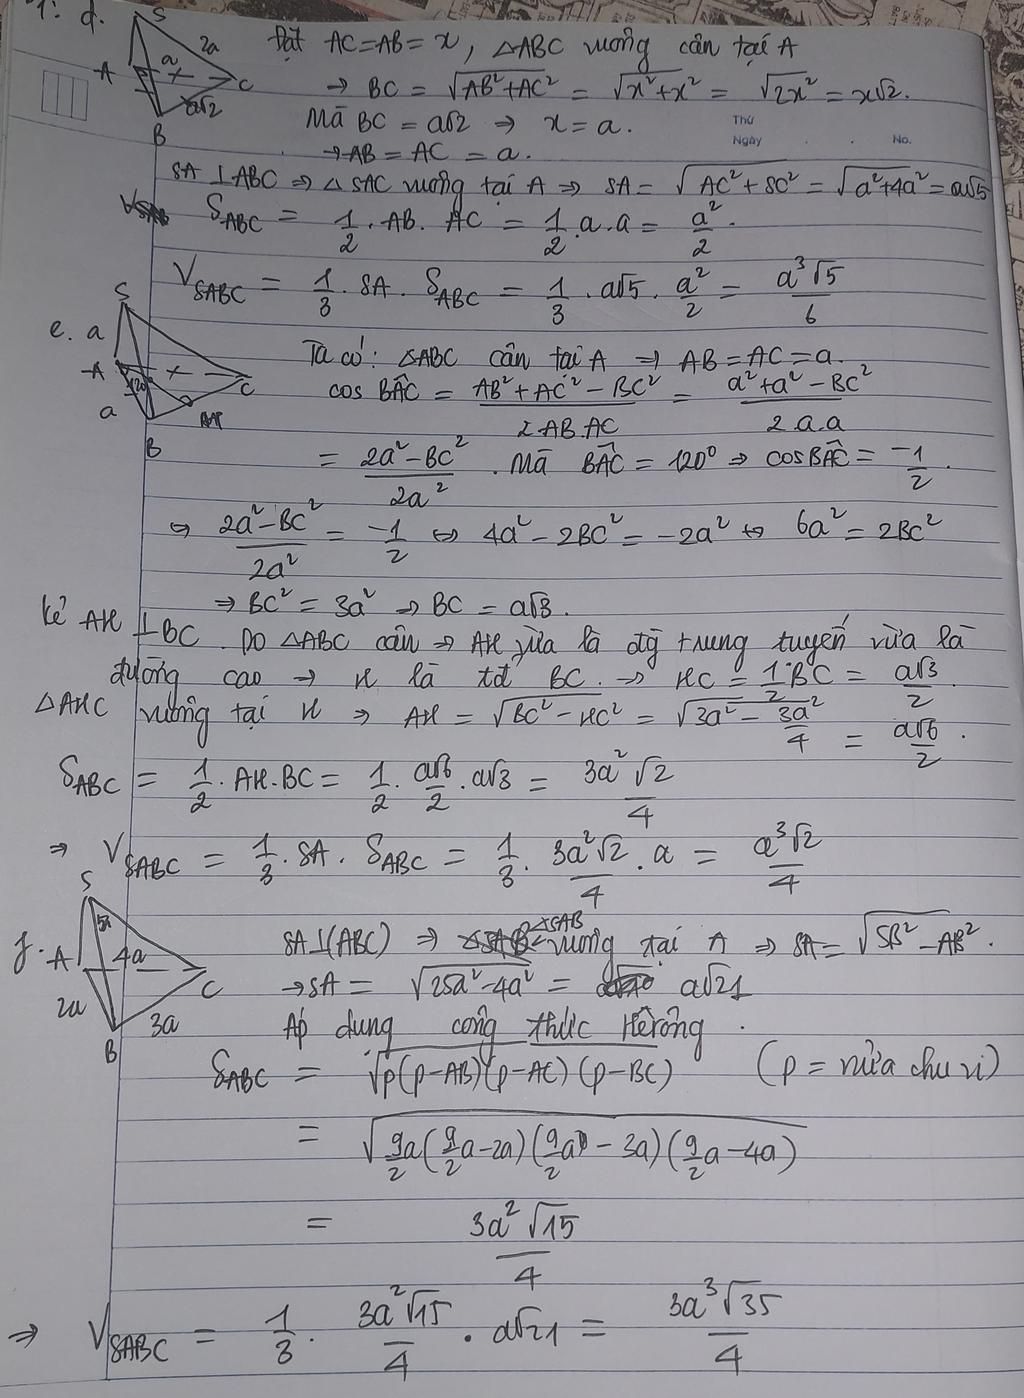 1: d.
S
2a
A
a
x
C
a√2
B
Đặt AC=AB=x, △ABC vuông cân tại A
→ BC = √AB²+AC² = √x²+x² = √2x² = x√2.
Mà BC = a√2 ⇒ x=a.
Thứ
Ngày . . No.
→ AB = AC = a.
SA ⊥ ABC ⇒ △SAC vuông tại A ⇒ SA = √AC²+SC² = √a²+4a² = a√5
S_ABC = 1/2 . AB. AC = 1/2 .a.a = a²/2.
V_SABC = 1/3 . SA. S_ABC = 1/3 . a√5. a²/2 = a³√5/6
e. a
S
A
x
C
120
a
B
Ta có: △ABC cân tại A ⇒ AB=AC=a.
cos BÂC = AB²+AC²-BC²/2.AB.AC = a²+a²-BC²/2.a.a
= 2a²-BC²/2a² . Mà BÂC = 120° ⇒ cosBÂC = -1/2.
⇒ 2a²-BC²/2a² = -1/2 ⇔ 4a²-2BC² = -2a² ⇔ 6a² = 2BC²
⇒ BC² = 3a² ⇒ BC = a√3.
Kẻ AH ⊥ BC. Do △ABC cân ⇒ AH vừa là đg trung tuyến vừa là
đường cao → H là tđ BC. ⇒ HC = 1/2 BC = a√3/2
△AHC vuông tại H ⇒ AH = √BC²-HC² = √3a²-3a²/4 = a√6/2.
S_ABC = 1/2 . AH.BC = 1/2 . a√6/2 . a√3 = 3a²√2/4
⇒ V_SABC = 1/3 . SA. S_ABC = 1/3 . 3a²√2/4 . a = a³√2/4
f.
S
5a
A
4a
C
2a
3a
B
SA⊥(ABC) ⇒ △SAB vuông tại A ⇒ SA = √SB²-AB².
→ SA = √25a²-4a² = a√21
Áp dung công thức Hêrông.
S_ABC = √p(p-AB)(p-AC)(p-BC) (p = nửa chu vi)
= √9/2a(9/2a-2a)(9/2a-3a)(9/2a-4a)
= 3a²√15/4
⇒ V_SABC = 1/3 . 3a²√15/4 . a√21 = 3a³√35/4